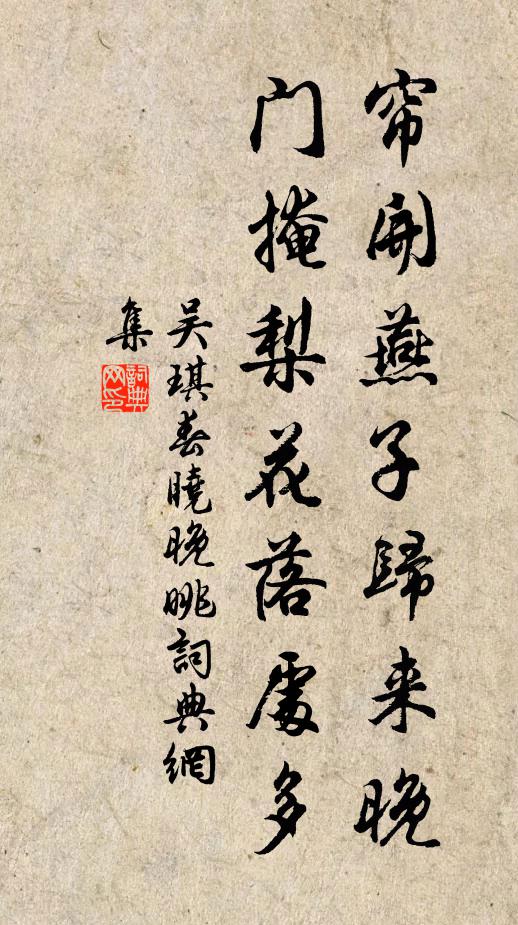 帘開燕子歸来晚
門掩梨花落處多
吴琪春曉晚眺詞典網
集
詞典
网印